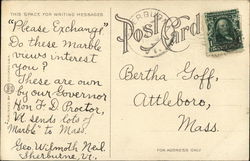 THIS SPACE FOR WRITING MESSAGES
"Please Exchange"
Do these marble
views interest
you?
These are own
by our Governor
Hon F D Proctor,
Vt sends lots of
Marble to Mass.
Geo Wilmoth Neil
Sherburne, Vt.
Post Card
Bertha Goff,
Attleboro,
Mass.
FOR ADDRESS ONLY